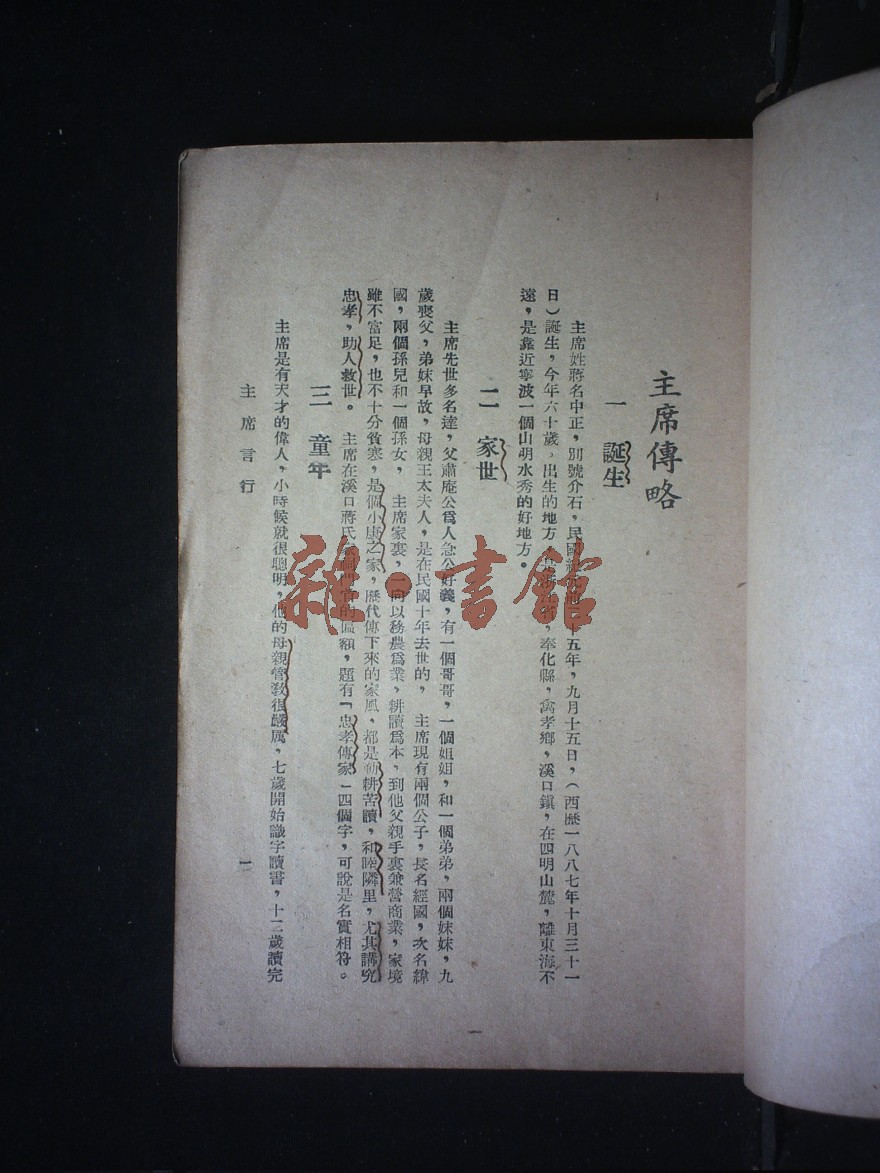 主席傳略
一 誕生
主席姓蔣名中正，別號介石，民國紀十五年，九月十五日，（西歷一八八七年十月三十一
日）誕生，今年六十歲。出生的地方，奉化縣，禽孝鄉，溪口鎮，在四明山麓，離東海不
遠，是靠近寧波一個山明水秀的好地方。
二 家世
主席先世多名達，父肅庵公爲人急公好義，有一個哥哥，一個姐姐，和一個弟弟，兩個妹妹，九
歲喪父，弟妹早故，母親王太夫人，是在民國十年去世的， 主席現有兩個公子，長名經國，次名緯
國，兩個孫兒和一個孫女， 主席家裏，一向以務農爲業，耕讀爲本，到他父親手裏兼營商業，家境
雖不富足，也不十分貧寒，是個小康之家，歷代傳下來的家風，都是勤耕苦讀，和睦隣里，尤其講究
忠孝，助人救世。 主席在溪口蔣氏的匾額，題有「忠孝傳家」四個字，可說是名實相符。
三 童年
主席是有天才的偉人，小時候就很聰明，他的母親管敎很嚴厲，七歲開始識字讀書，十二歲讀完
主席言行
一
雜·書館